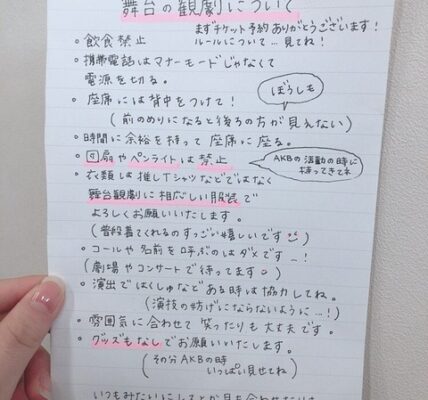 舞台の観劇について
まずチケット予約ありがとうございます!
ルールについて…見てね!
• 飲食禁止
• 携帯電話はマナーモードじゃなくて
電源を切る。
• 座席には背中をつけて!
ぼうしも
(前のめりになると後ろの方が見えない)
• 時間に余裕を持って座席に座る。
• 団扇やペンライトは禁止
AKBの活動の時に
持ってきてネ
• 衣類は推しTシャツなどではなく
舞台観劇に相応しい服装で
よろしくお願いいたします。
(普段着てくれるのすっごい嬉しいです)
• コールや名前を呼ぶのはダメです…!
(劇場やコンサートで待ってます)
• 演出ではくしゅなどある時は協力してね。
(演技の妨げにならないように…!)
• 雰囲気に合わせて笑ったりも大丈夫です。
• グッズもなしでお願いいたします。
(その分AKBの時
いっぱい見せてね)
いつもみたいに